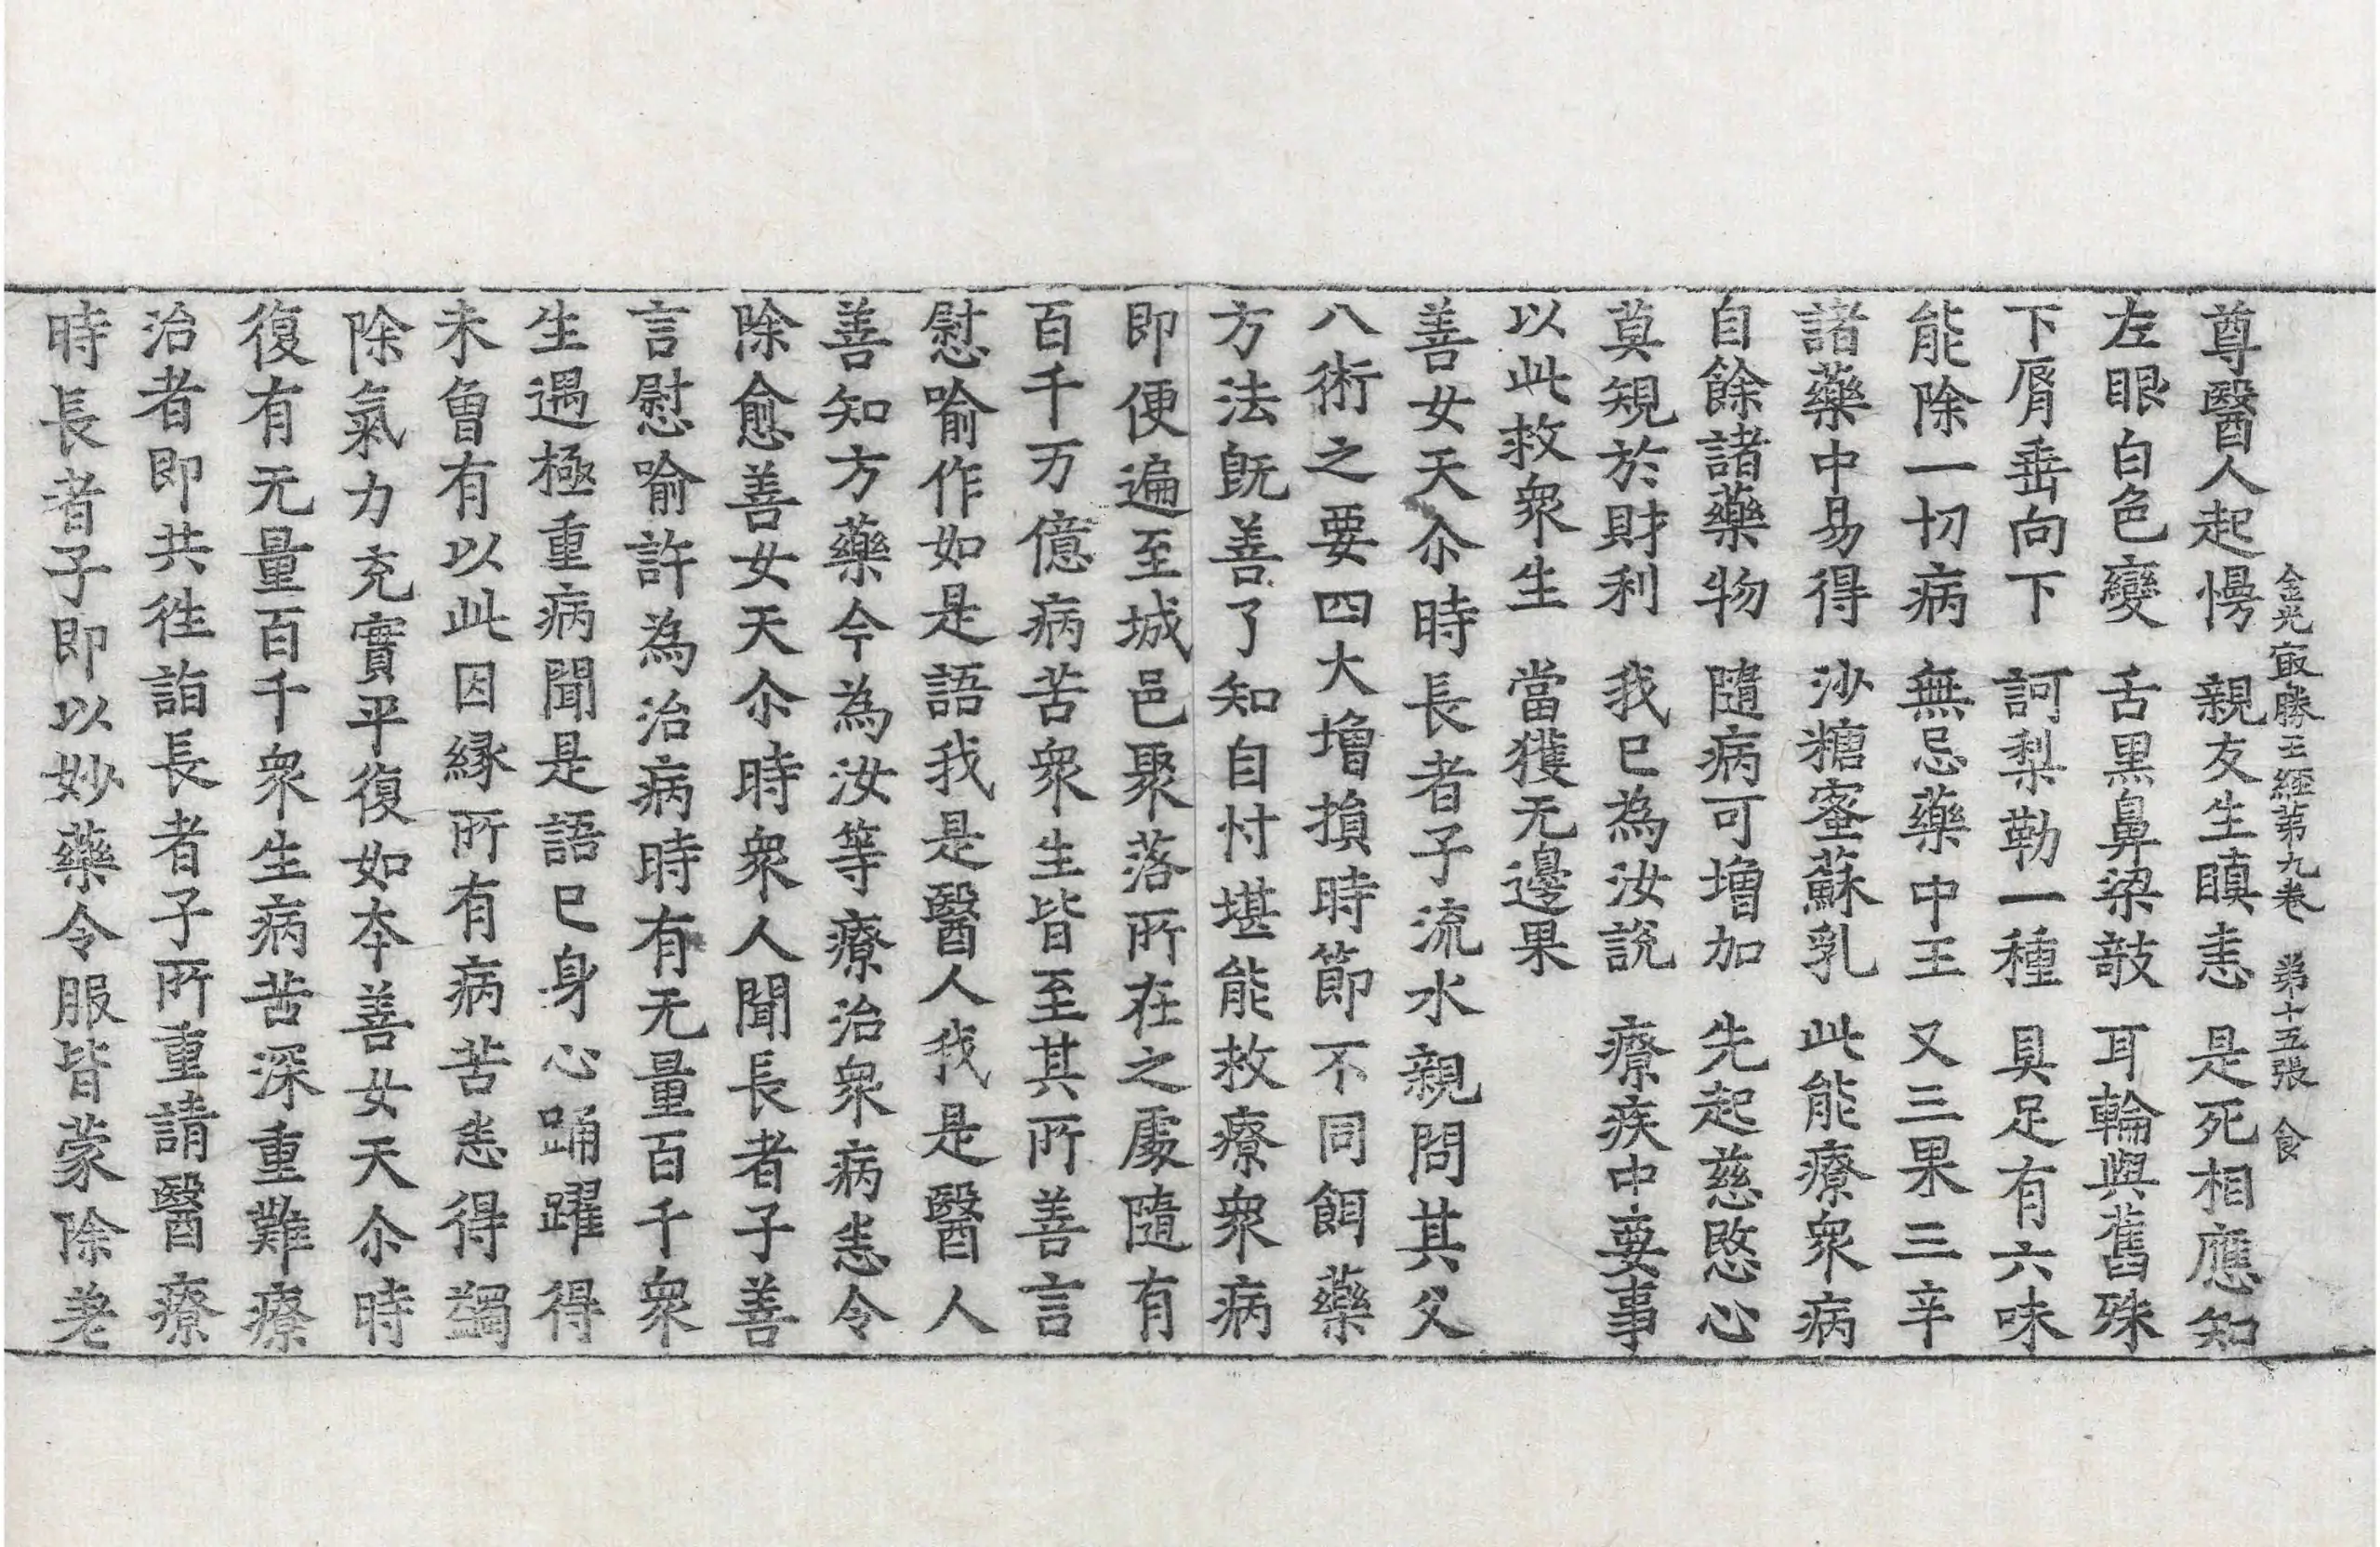 金光㝡勝王經第九卷　第十五張　食
尊醫人起慢　親友生瞋恚　是死相應知
左眼白色變　舌黑鼻梁敧　耳輪與舊殊
下脣垂向下　訶梨勒一種　具足有六味
能除一切病　無忌藥中王　又三果三辛
諸藥中易得　沙糖蜜蘇乳　此能療衆病
自餘諸藥物　隨病可增加　先起慈愍心
莫䂓於財利　我已為汝說　療疾中要事
以此救衆生　當獲无邊果
善女天尒時長者子流水親問其父
八術之要四大增損時節不同餌藥
方法旣善了知自忖堪能救療衆病
即便遍至城邑聚落所在之處隨有
百千万億病苦衆生皆至其所善言
慰喻作如是語我是醫人我是醫人
善知方藥今為汝等療治衆病悉令
除愈善女天尒時衆人聞長者子善
言慰喻許為治病時有无量百千衆
生遇極重病聞是語已身心踊躍得
未曾有以此因緣所有病苦悉得蠲
除氣力充實平復如本善女天尒時
復有无量百千衆生病苦深重難療
治者即共往詣長者子所重請醫療
時長者子即以妙藥令服皆蒙除差